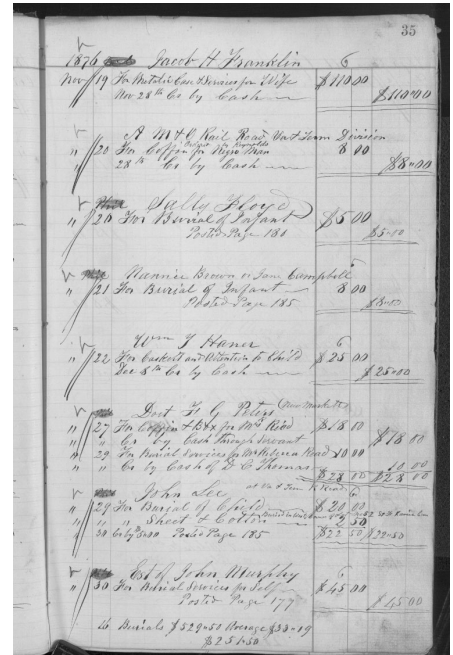 35
1876 Jacob H Franklin 6
Nov 19 For Metalic Case & Services for Wife $110 00
Nov 28th Cr by Cash $110=00
A M & O Rail Road Va & Tenn Division
" 20 For Coffin for Negro Man 8 00
" 28th Cr by Cash $8=00
Sally Floyd
" 20 For Burial of Infant $5 00
Posted Page 180 $5=00
Nannie Brown or Jane Campbell
" 21 For Burial of Infant 8 00
Posted Page 185 $8=00
Wm J Haner 6
" 22 For Caskett and Attention to Child $25 00
Dec 8th Cr by Cash $25=00
Doct F G Peters (New Market)
" 27 For Coffin & Box for Mrs Read $18 00
" " Cr by Cash Through Servant $18 00
" 29 For Burial Services for Mrs Rebecca Read 10 00
" " Cr by Cash of D C Thomas 10 00
$28 00 $28 00
John Lee at Va & Tenn R Road 6
" 29 For Burial of Child $20 00
" " Sheet & Cotton 2 50
" 30 Cr by Posted Page 185 $22 50 $22=50
Est of John Murphy 6
" 30 For Burial Services for Self $45 00
Posted Page 177 $45 00
26 Burials $529=50 Average $33=19
$251=50